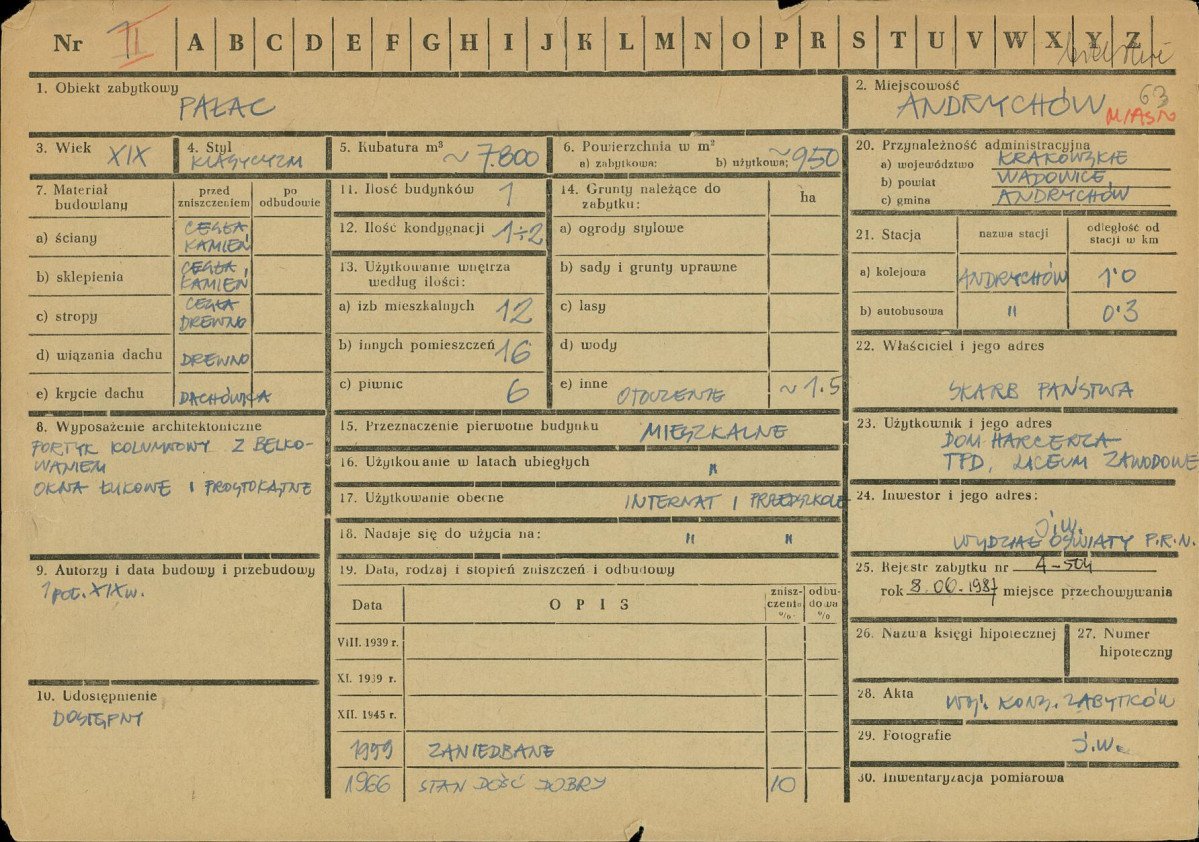 Nr II A B C D E F G H I J K L M N O P R S T U V W X Y Z
1. Obiekt zabytkowy
PAŁAC
2. Miejscowość
ANDRYCHÓW 63
MIASTO
3. Wiek XIX
4. Styl
KLASYCYZM
5. Kubatura m³ ~7800
6. Powierzchnia w m²
a) zabytkowa: b) użytkowa: ~950
7. Materiał budowlany
przed zniszczeniem
po odbudowie
a) ściany CEGŁA, KAMIEŃ
b) sklepienia CEGŁA, KAMIEŃ
c) stropy CEGŁA DREWNO
d) wiązania dachu DREWNO
e) krycie dachu DACHÓWKA
8. Wyposażenie architektoniczne
PORTYK KOLUMNOWY Z BELKO-
WANIEM
OKNA ŁUKOWE I PROSTOKĄTNE
9. Autorzy i data budowy i przebudowy
1 poł. XIX w.
10. Udostępnienie
DOSTĘPNY
11. Ilość budynków 1
12. Ilość kondygnacji 1÷2
13. Użytkowanie wnętrza
według ilości:
a) izb mieszkalnych 12
b) innych pomieszczeń 16
c) piwnic 6
14. Grunty należące do
zabytku:
ha
a) ogrody stylowe
b) sady i grunty uprawne
c) lasy
d) wody
e) inne OTOCZENIE ~1.5
15. Przeznaczenie pierwotne budynku MIESZKALNE
16. Użytkowanie w latach ubiegłych "
17. Użytkowanie obecne INTERNAT I PRZEDSZKOLE
18. Nadaje się do użycia na: " "
19. Data, rodzaj i stopień zniszczeń i odbudowy
Data OPIS
znisz-
czenia
%
odbu-
dowa
%
VIII. 1939 r.
XI. 1939 r.
XII. 1945 r.
1959 ZANIEDBANE
1966 STAN DOŚĆ DOBRY 10
20. Przynależność administracyjna
a) województwo KRAKOWSKIE
b) powiat WADOWICE
c) gmina ANDRYCHÓW
21. Stacja nazwa stacji
odległość od
stacji w km
a) kolejowa ANDRYCHÓW 1·0
b) autobusowa " 0·3
22. Właściciel i jego adres
SKARB PAŃSTWA
23. Użytkownik i jego adres
DOM HARCERZA
TPD, LICEUM ZAWODOWE
24. Inwestor i jego adres:
j.w.
WYDZIAŁ OŚWIATY P.R.N.
25. Rejestr zabytku nr A-504
rok 8.06.1987 miejsce przechowywania
26. Nazwa księgi hipotecznej
27. Numer
hipoteczny
28. Akta WOJ. KONS. ZABYTKÓW
29. Fotografie
j.w.
30. Inwentaryzacja pomiarowa